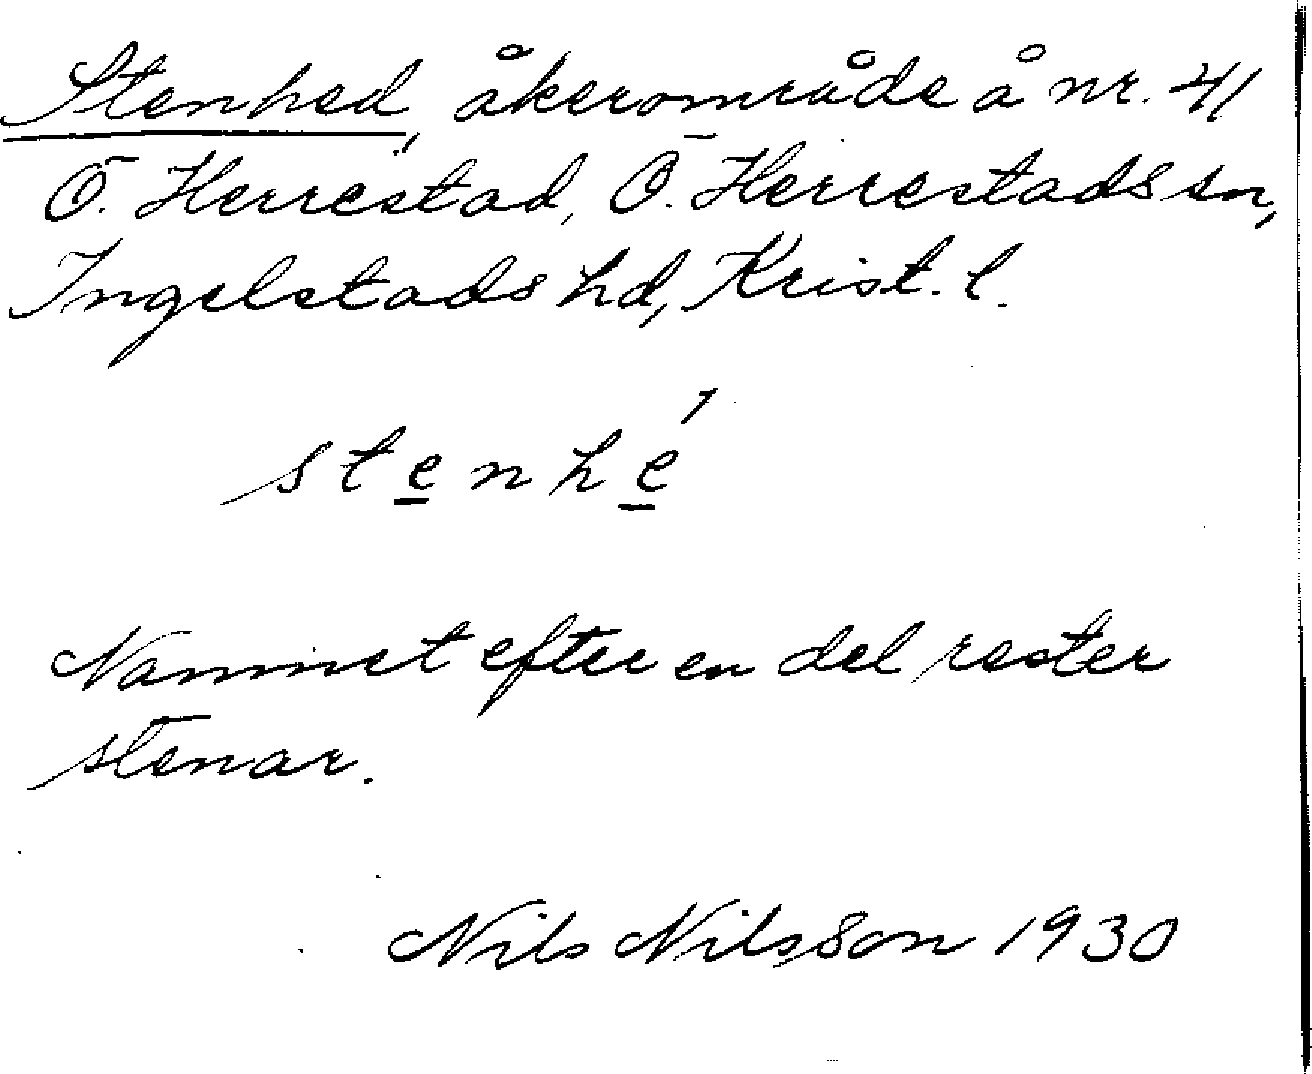 Stenhed, åkerområde å nr. 41
Ö. Herrestad, Ö. Herrestads sn,
Ingelstads hd, Krist. l.
stenhé
Namnet efter en del rester
stenar.
Nils Nilsson 1930